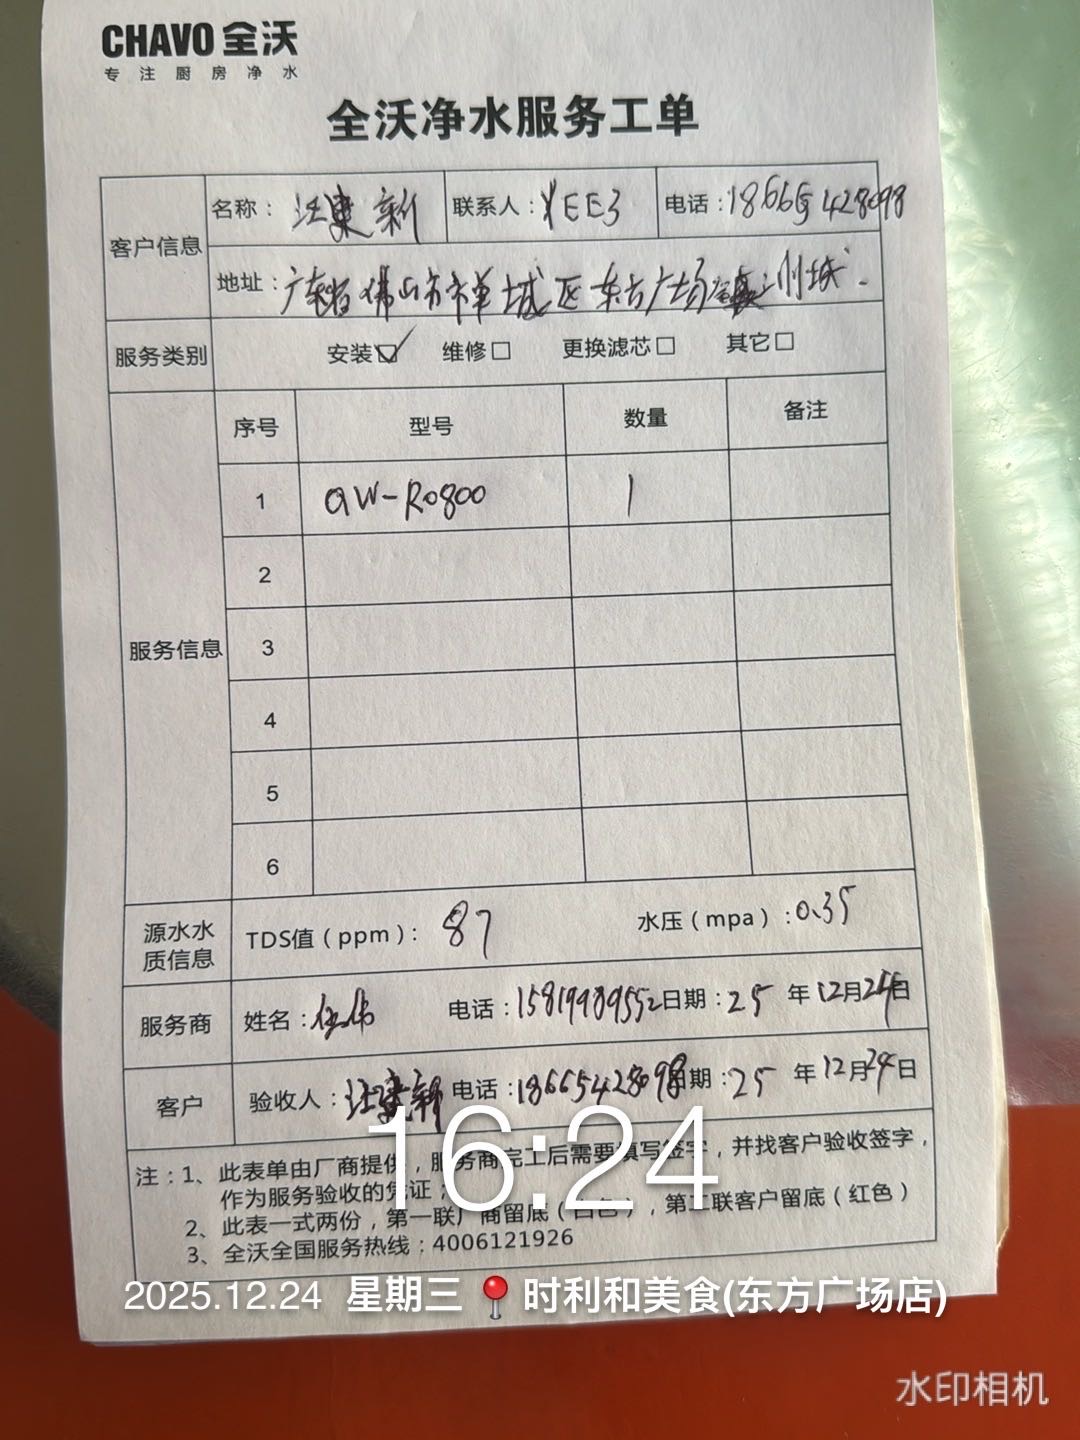 CHAVO 全沃
专注厨房净水
全沃净水服务工单
客户信息 名称： 联系人：YEE3 电话：18665428098
地址：广东省佛山市禅城区东方广场
服务类别 安装☑ 维修□ 更换滤芯□ 其它□
服务信息 序号 型号 数量 备注
1 QW-RO800 1
2
3
4
5
6
源水水质信息 TDS值（ppm）：87 水压（mpa）：0.35
服务商 姓名：任伟 电话：15819989552 日期：25 年 12月24日
客户 验收人： 电话：18665428098 日期：25 年 12月24日
注：1、此表单由厂商提供，服务商完工后需要填写签字，并找客户验收签字，
作为服务验收的凭证；
2、此表一式两份，第一联厂商留底（白色），第二联客户留底（红色）
3、全沃全国服务热线：4006121926
16:24
2025.12.24 星期三 时利和美食(东方广场店)
水印相机